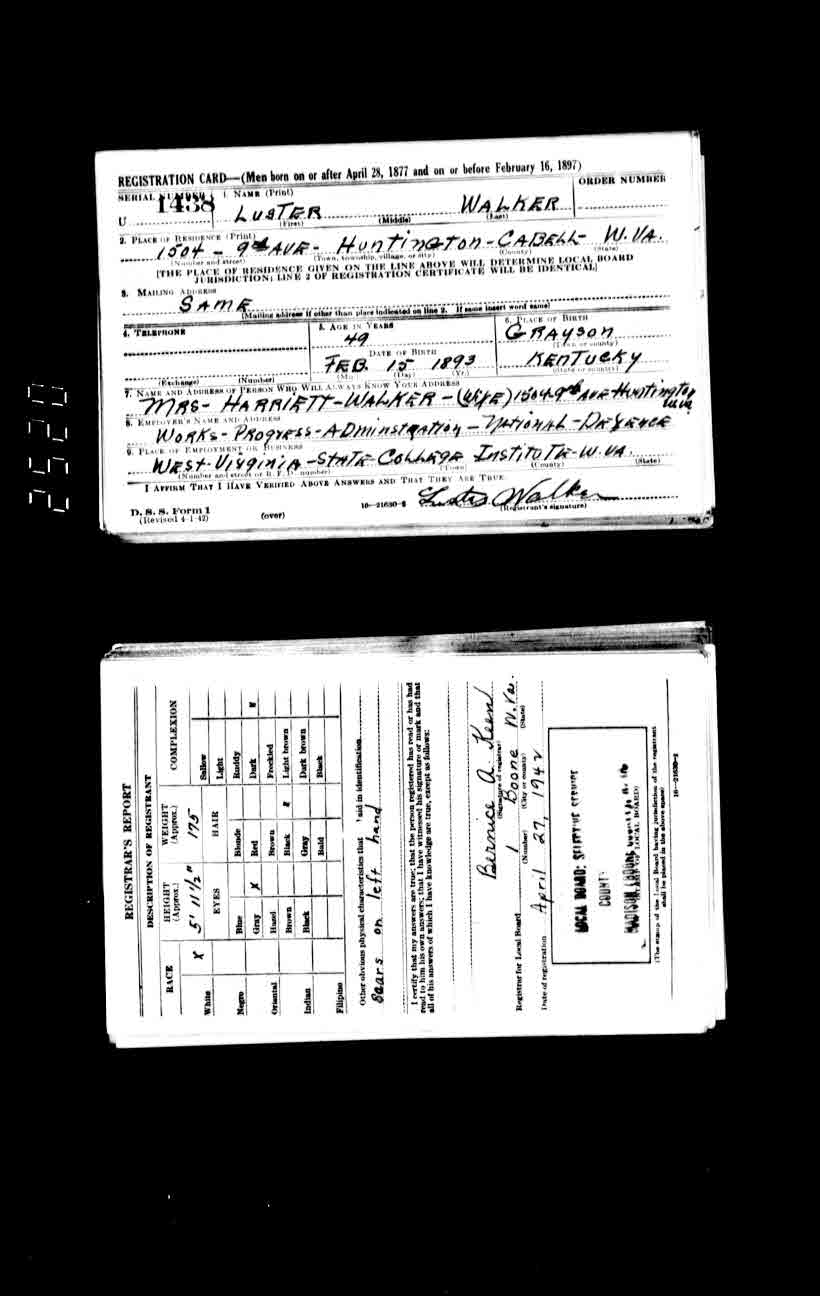 2520
REGISTRATION CARD—(Men born on or after April 28, 1877 and on or before February 16, 1897)
SERIAL NUMBER 1. NAME (Print) ORDER NUMBER
1438
U LUSTER WALKER
(First) (Middle) (Last)
2. PLACE OF RESIDENCE (Print)
1504 - 9th AVE - HUNTINGTON - CABELL - W. VA.
(Number and street) (Town, township, village, or city) (County) (State)
[THE PLACE OF RESIDENCE GIVEN ON THE LINE ABOVE WILL DETERMINE LOCAL BOARD
JURISDICTION; LINE 2 OF REGISTRATION CERTIFICATE WILL BE IDENTICAL]
3. MAILING ADDRESS
SAME
(Mailing address if other than place indicated on line 2. If same insert word same)
4. TELEPHONE 5. AGE IN YEARS 6. PLACE OF BIRTH
49 GRAYSON
DATE OF BIRTH (Town or county)
FEB. 15 1893 KENTUCKY
(Exchange) (Number) (Mo.) (Day) (Yr.) (State or country)
7. NAME AND ADDRESS OF PERSON WHO WILL ALWAYS KNOW YOUR ADDRESS
MRS - HARRIETT - WALKER - (WIFE) 1504-9th AVE Huntington W.VA
8. EMPLOYER'S NAME AND ADDRESS
WORKS - PROGRESS - ADMINSTRATION - NATIONAL - DEFENCE
9. PLACE OF EMPLOYMENT OR BUSINESS
WEST - VIRGINIA - STATE COLLEGE INSTITUTE - W. VA.
(Number and street or R. F. D. number) (Town) (County) (State)
I AFFIRM THAT I HAVE VERIFIED ABOVE ANSWERS AND THAT THEY ARE TRUE.
D. S. S. Form 1 16—21630-2 Luster Walker
(Revised 4-1-42) (over) (Registrant's signature)
REGISTRAR'S REPORT
DESCRIPTION OF REGISTRANT
RACE HEIGHT (Approx.) WEIGHT (Approx.) COMPLEXION
X 5' 11 1/2" 175
White EYES HAIR Sallow
Light
Negro Blue Blonde Ruddy
Gray X Red Dark X
Oriental Hazel Brown Freckled
Brown Black X Light brown
Indian Black Gray Dark brown
Bald Black
Filipino
Other obvious physical characteristics that aid in identification
Scars on left hand
I certify that my answers are true; that the person registered has read or has had
read to him his own answers; that I have witnessed his signature or mark and that
all of his answers of which I have knowledge are true, except as follows:
Bernice A. Keen
(Signature of registrar)
Registrar for Local Board 1 Boone W. Va.
(Number) (City or county) (State)
Date of registration April 27, 1942
LOCAL BOARD: SELECTIVE SERVICE
COUNTY
MADISON
(STAMP OF LOCAL BOARD)
(The stamp of the Local Board having jurisdiction of the registrant
shall be placed in the above space)
16—21630-2